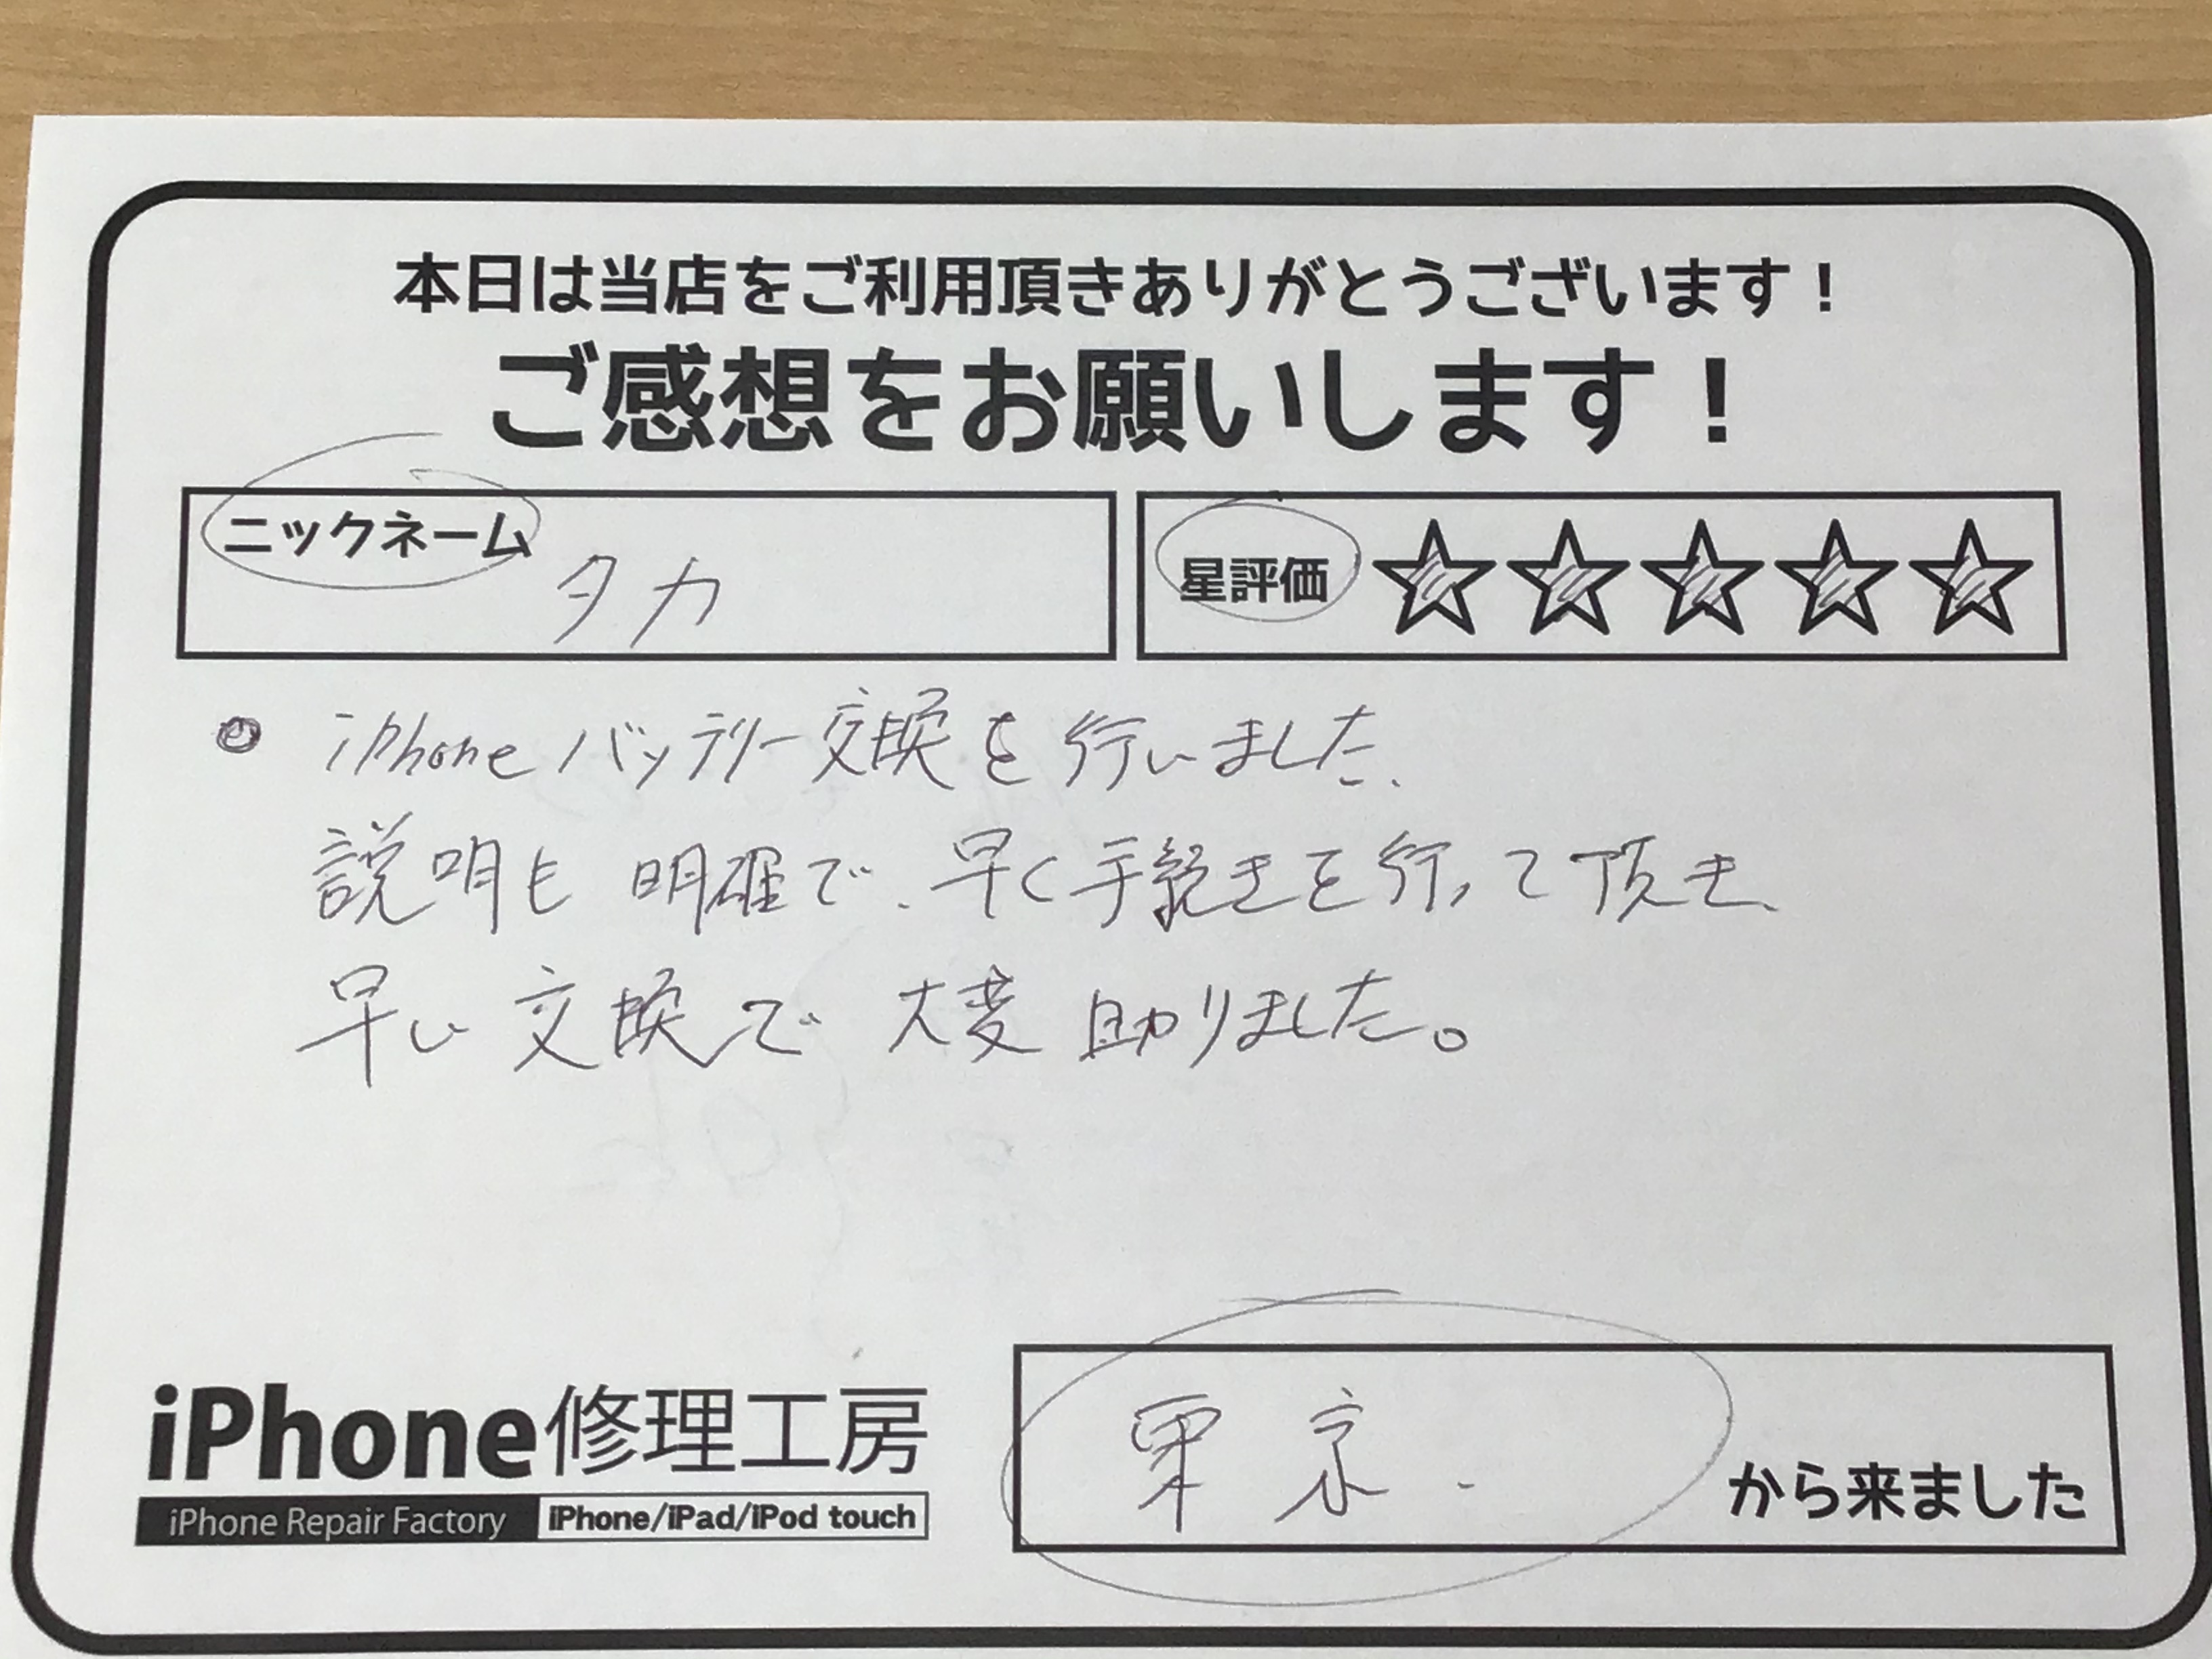 本日は当店をご利用頂きありがとうございます！
ご感想をお願いします！
ニックネーム タカ
星評価 ☆☆☆☆☆
iPhoneバッテリー交換を行いました、
説明も明確で、早く手続きを行って頂き、
早い交換で大変助りました。
iPhone修理工房
iPhone Repair Factory iPhone/iPad/iPod touch
東京 から来ました